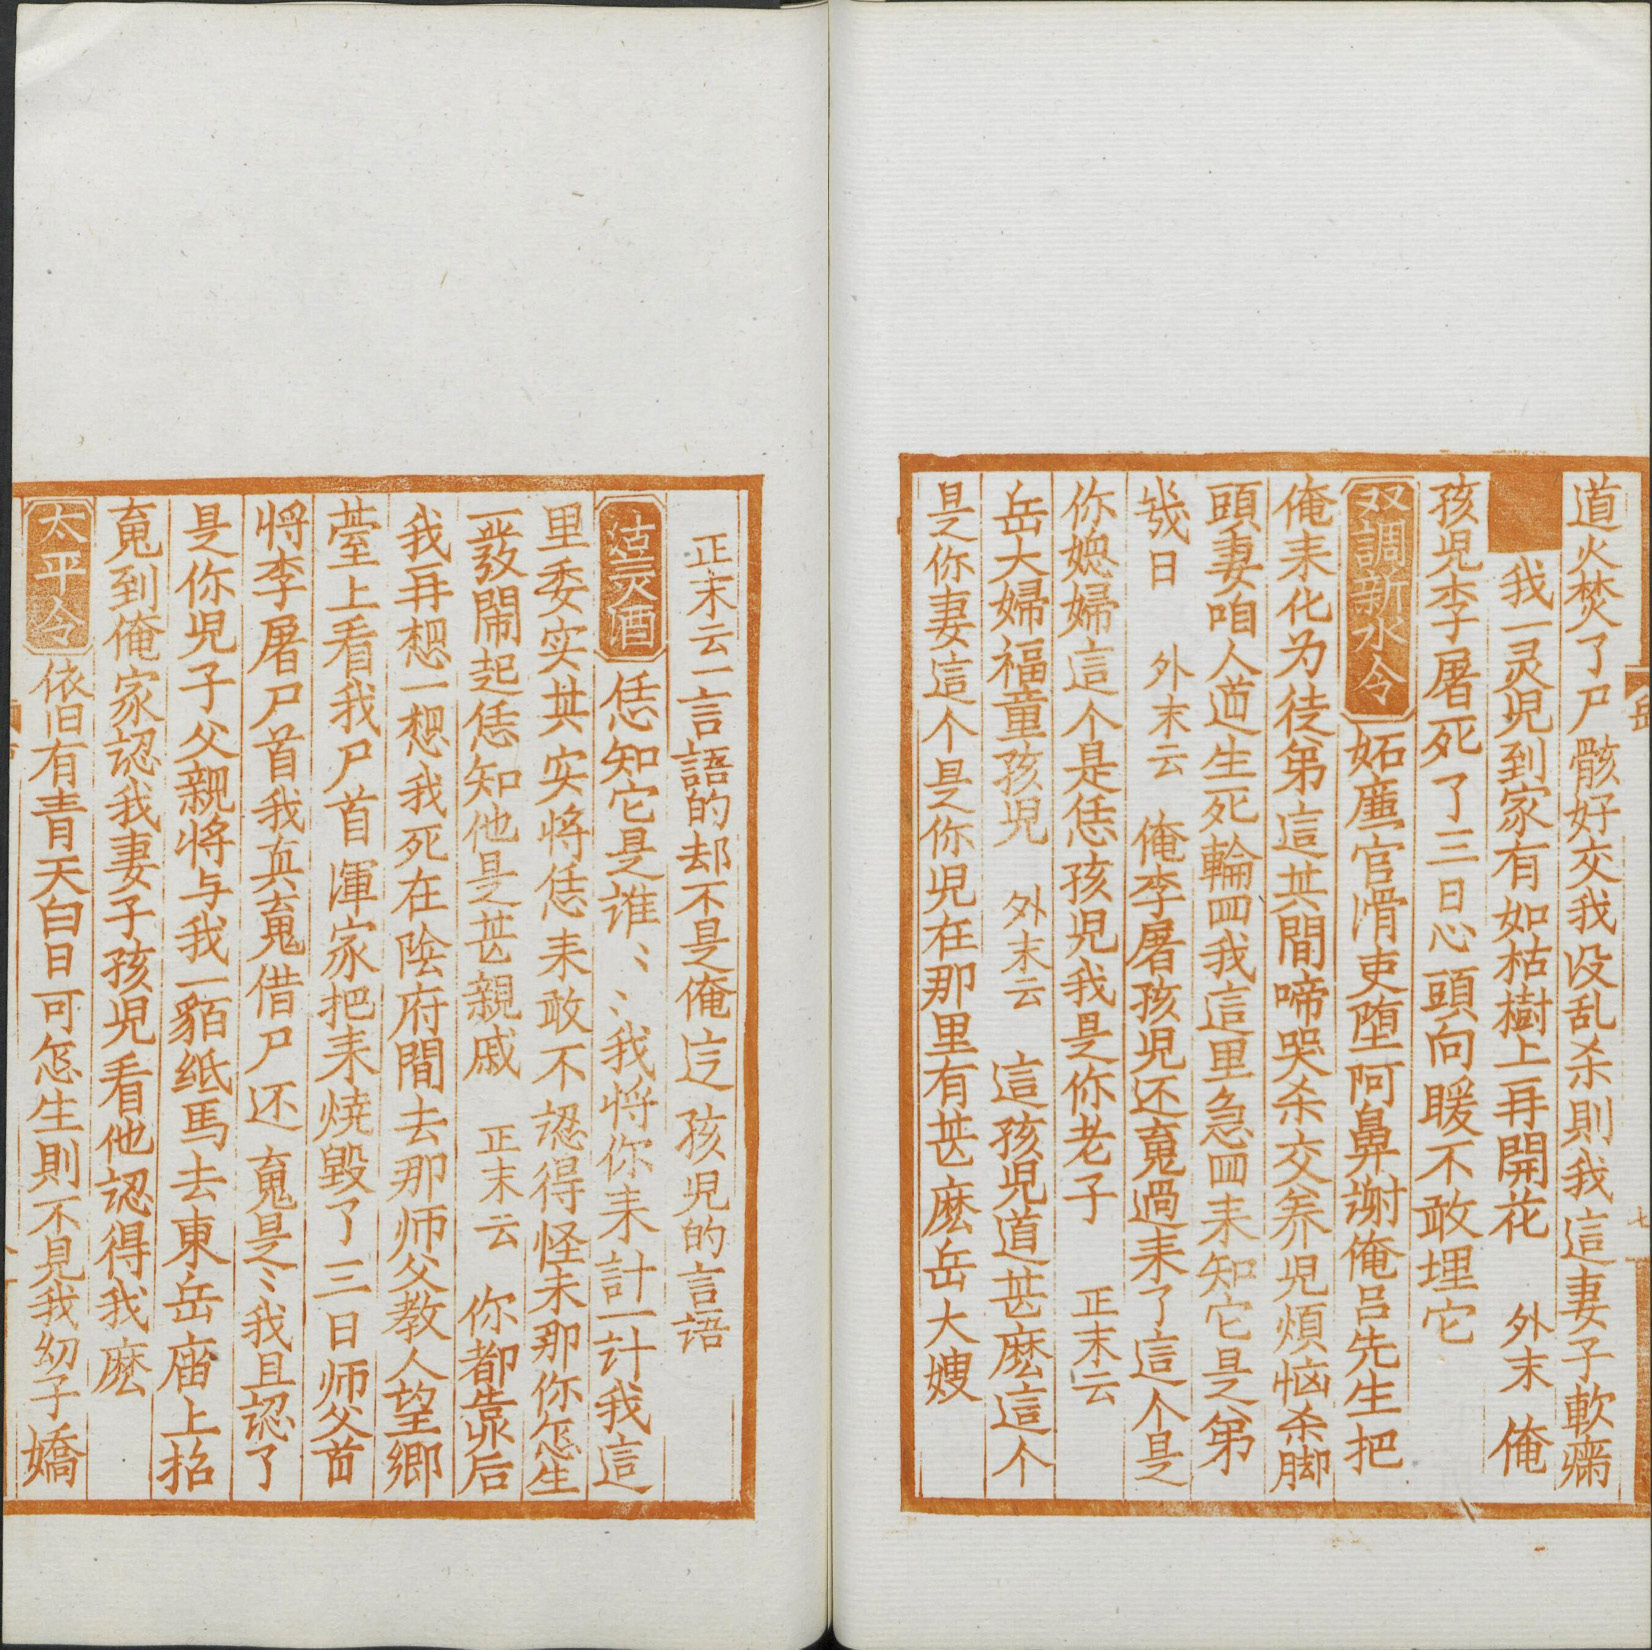 道火焚了尸骸好交我没乱杀則我這妻子軟癱
我一灵児到家有如枯樹上再開花 外末 俺
孩児李屠死了三日心頭向暖不敢埋它
双調新水令 妬廉官滑吏堕阿鼻謝俺吕先生把
俺耒化为徒弟這其間啼哭杀交养児煩恼杀脚
頭妻咱人道生死輪囬我這里急囬耒知它是第
幾日 外末云 俺李屠孩児还䰟過耒了這个是
你媳婦這个是恁孩児我是你老子 正末云
岳大婦福童孩児 外末云 這孩児道甚麽這个
是你妻這个是你児在那里有甚麽岳大嫂
正末云一言語的却不是俺這孩児的言語
沽美酒 恁知它是谁〻〻我将你耒計一計我這
里委实其实将恁耒敢不認得怪未那你怎生
一發鬧起恁知他是甚親戚 正末云 你都靠后
我再想一想我死在陰府間去那师父教人望鄉
䑓上看我尸首渾家把耒焼毀了三日师父着
将李屠尸首我真䰟借尸还䰟是〻我且認了
是你児子父親将与我一貊纸馬去東岳庙上招
䰟到俺家認我妻子孩児看他認得我麽
太平令 依旧有青天白日可怎生則不見我㓜子嬌